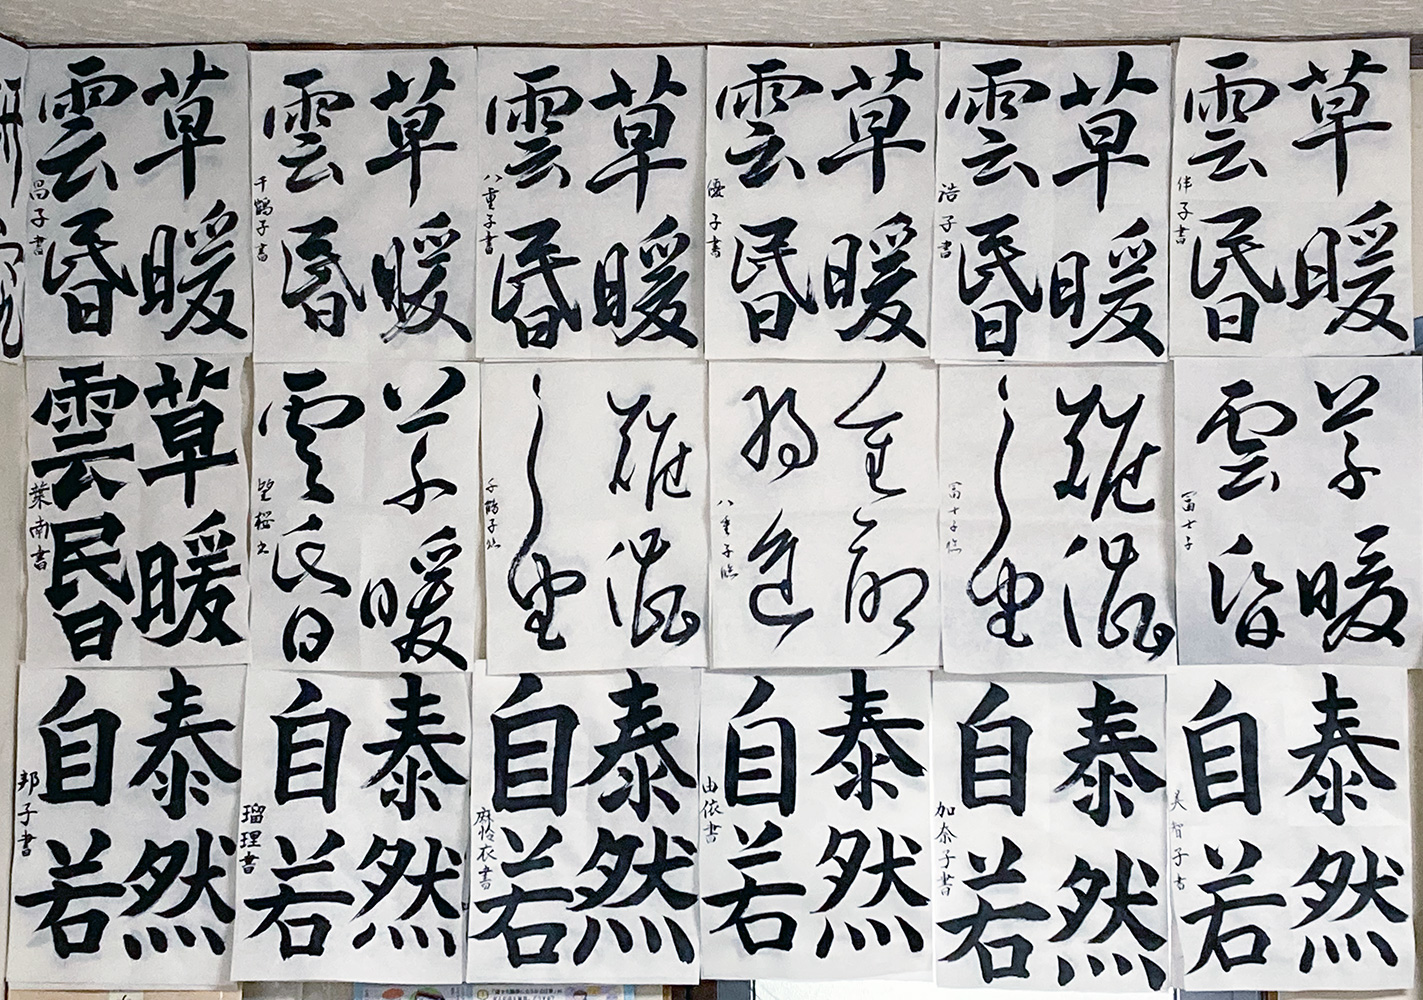 草暖
雲昏
伴子書
草暖
雲昏
浩子書
草暖
雲昏
優子書
草暖
雲昏
八重子書
草暖
雲昏
千鶴子書
草暖
雲昏
昌子書
草暖
雲昏
富士子
富士子臨
八重子臨
千鶴子臨
草暖
雲昏
草暖
雲昏
葉南書
泰然
自若
美智子書
泰然
自若
加奈子書
泰然
自若
由依書
泰然
自若
麻怜衣書
泰然
自若
瑠理書
泰然
自若
邦子書